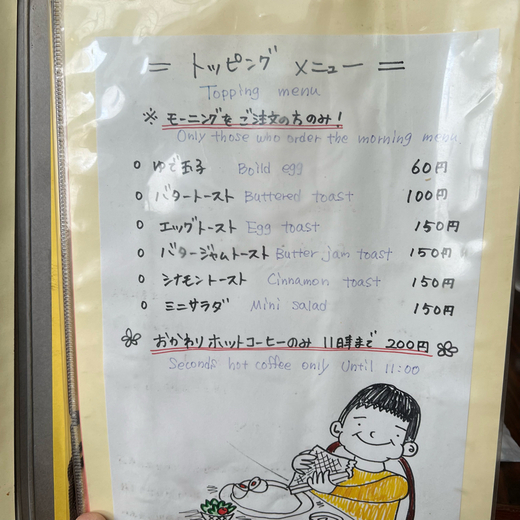 = トッピング メニュー =
Topping menu
※ モーニングをご注文の方のみ!
Only those who order the morning menu
○ ゆで玉子 Boild egg 60円
○ バタートースト Buttered toast 100円
○ エッグトースト Egg toast 150円
○ バタージャムトースト Butter jam toast 150円
○ シナモントースト Cinnamon toast 150円
○ ミニサラダ Mini salad 150円
おかわりホットコーヒーのみ 11時まで 200円
Seconds hot coffee only Until 11:00